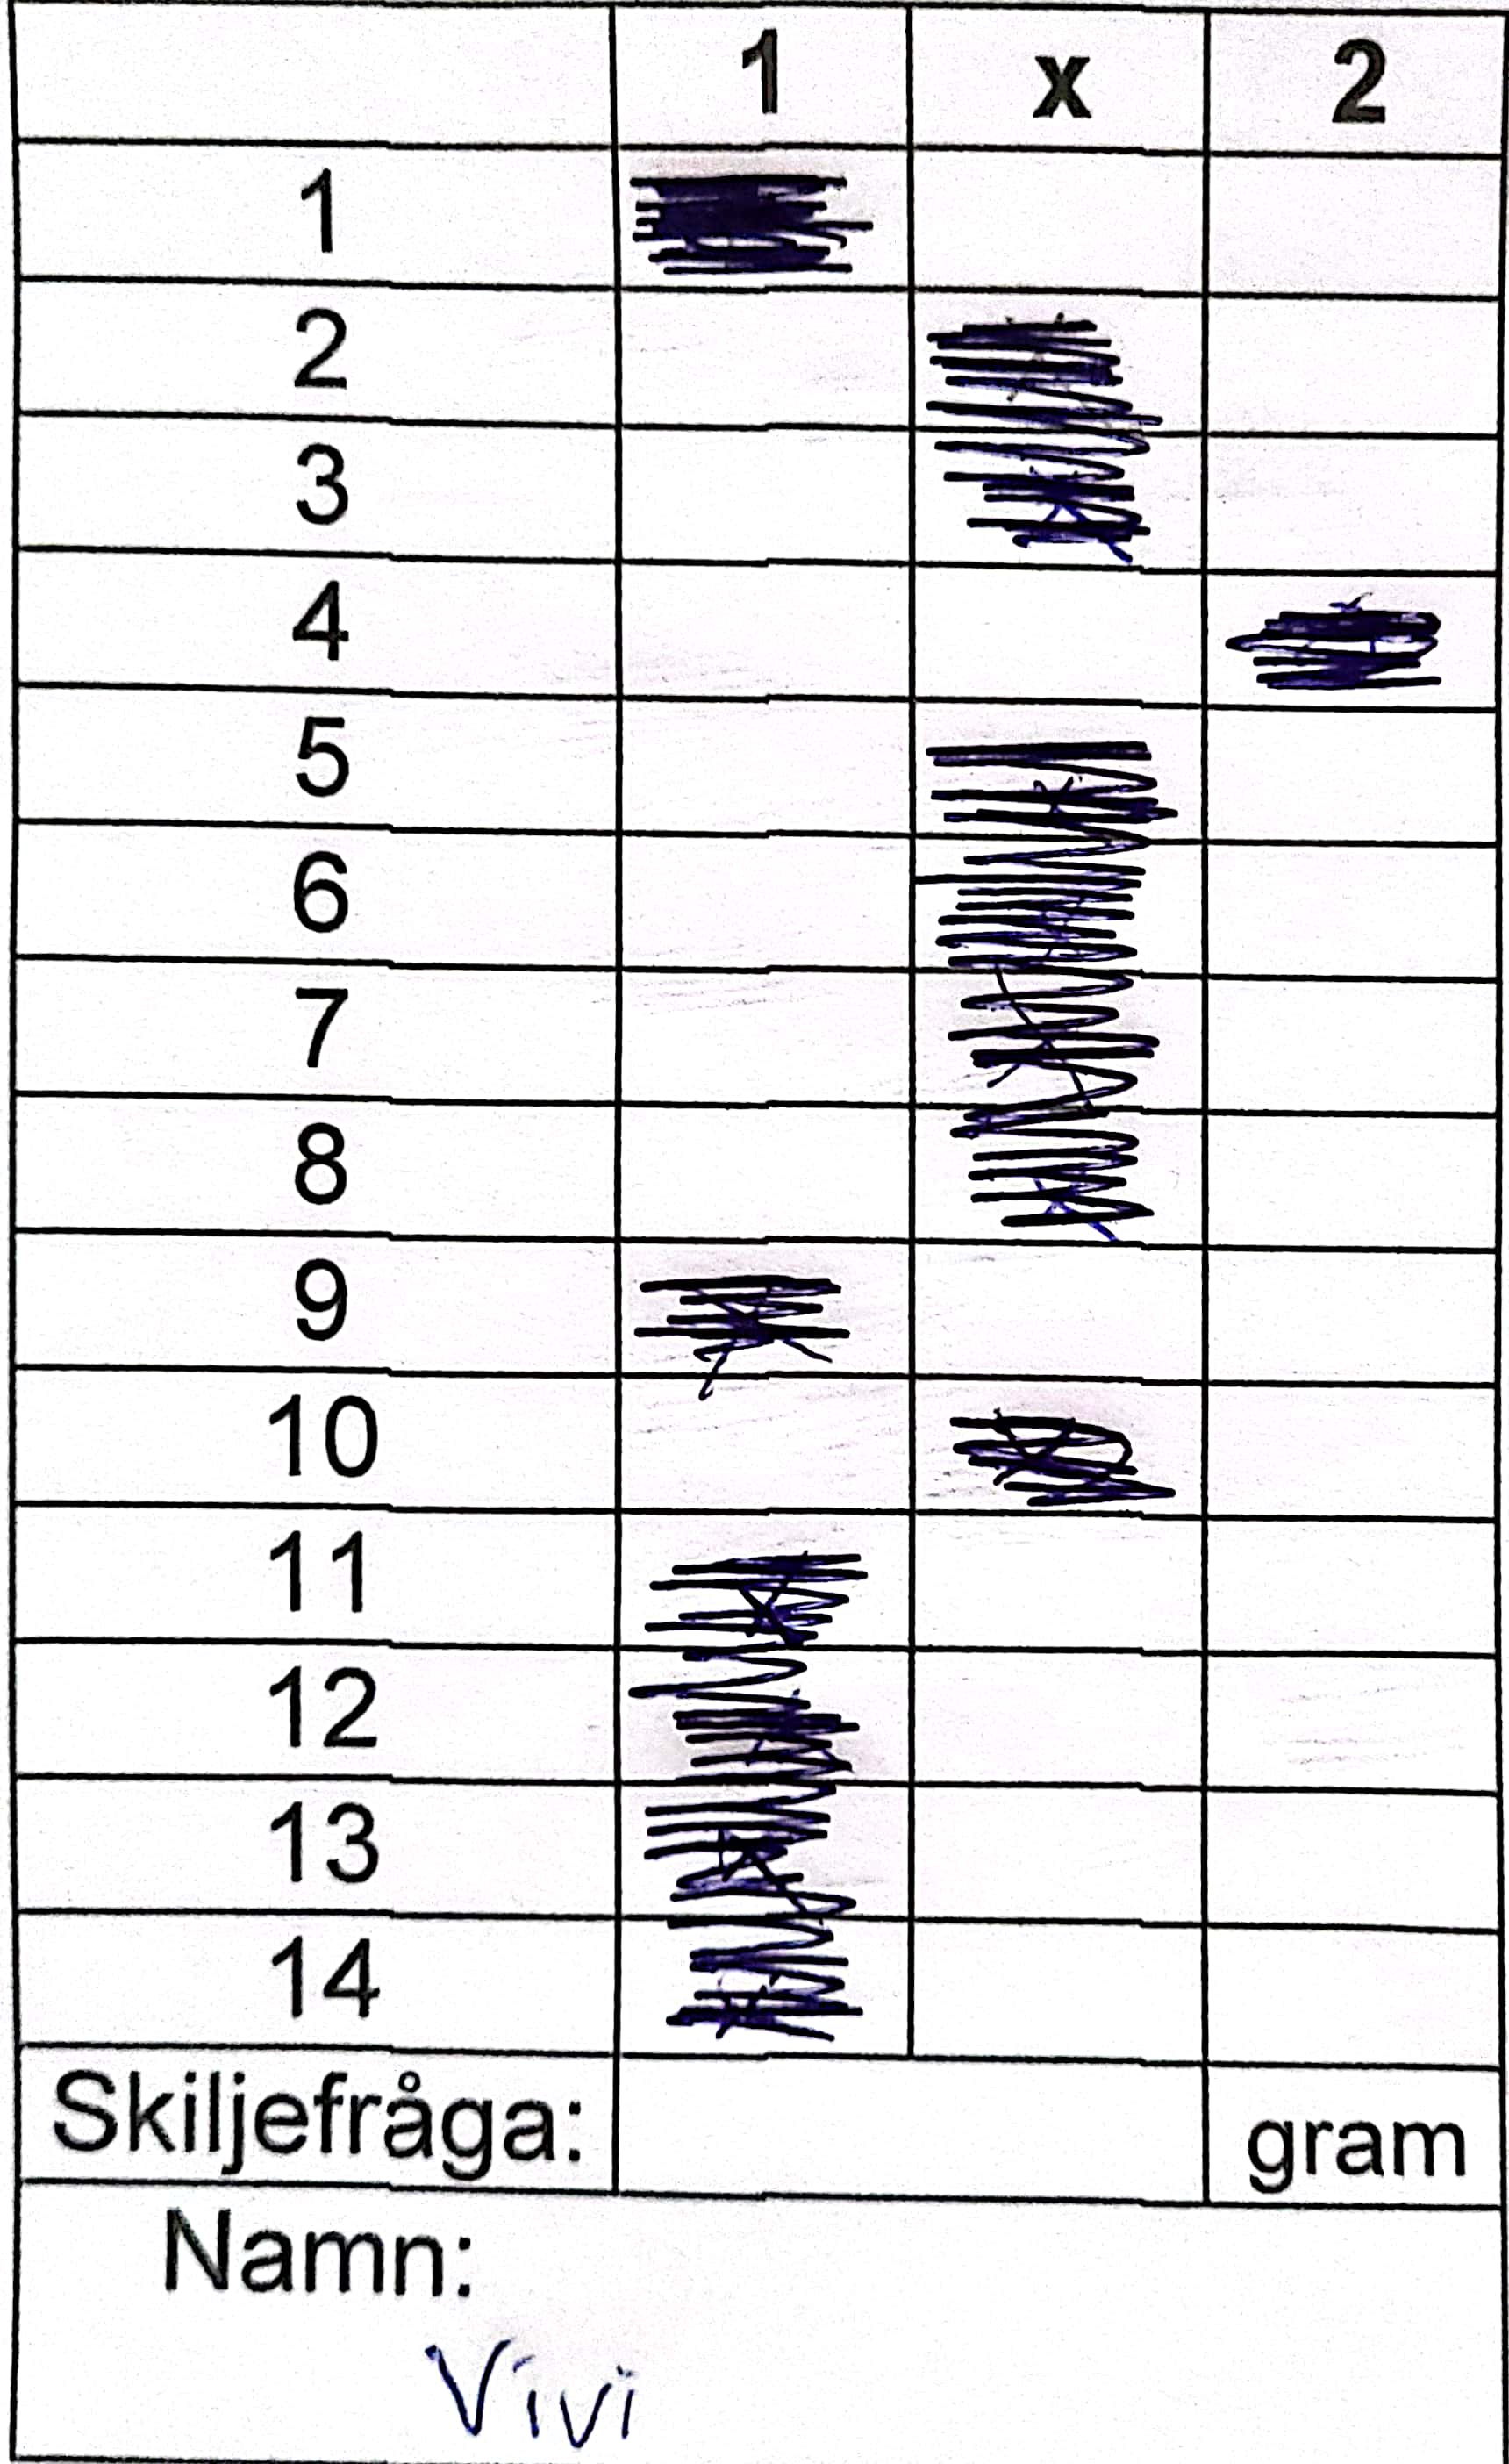 1 x 2
1
2
3
4
5
6
7
8
9
10
11
12
13
14
Skiljefråga: gram
Namn:
Vivi